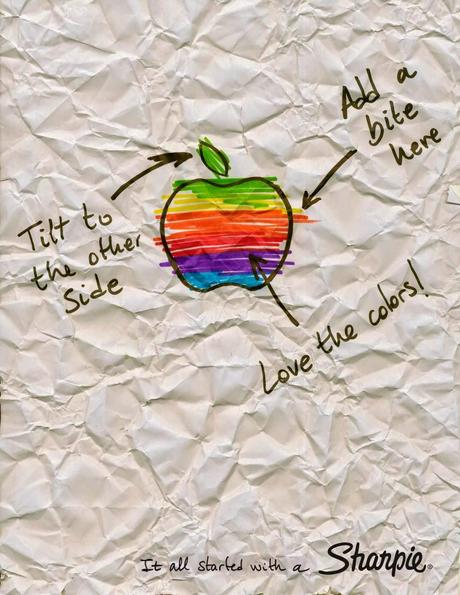 Add a
bite
here
Tilt to
the other
Side
Love the colors!
It all started with a Sharpie®